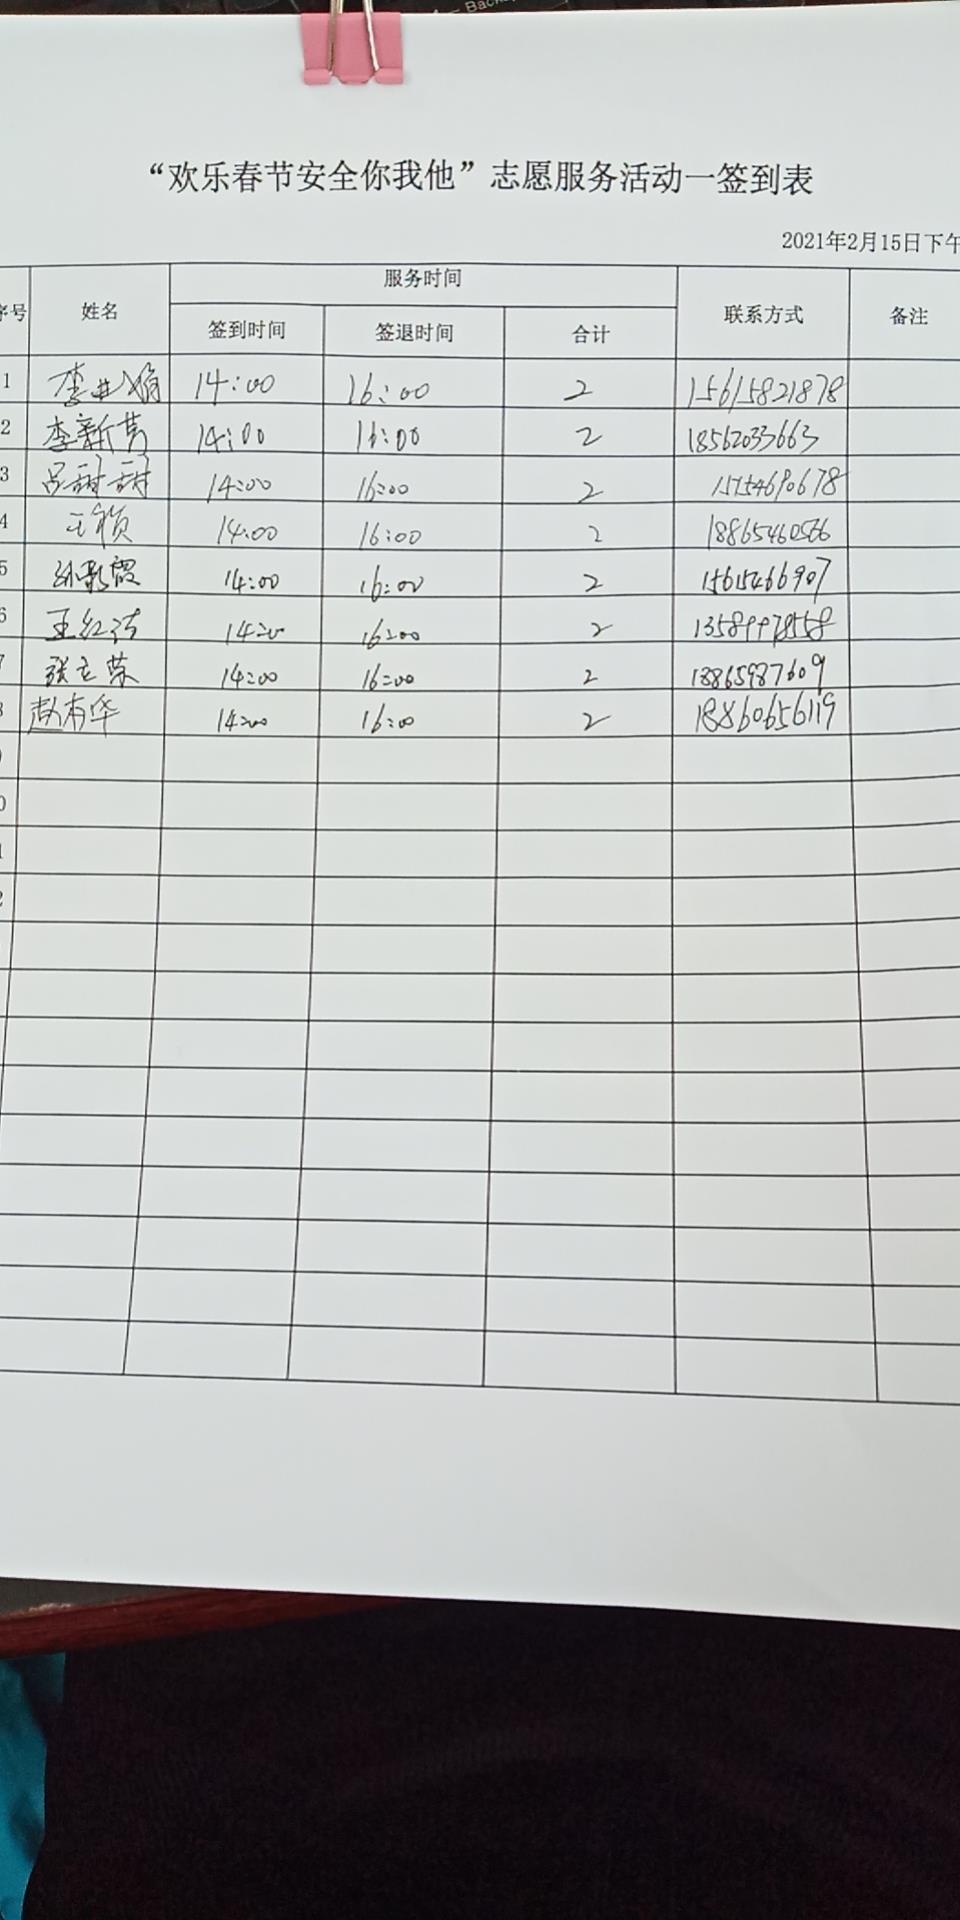 “欢乐春节安全你我他”志愿服务活动一签到表
2021年2月15日下午
序号 姓名 服务时间 联系方式 备注
签到时间 签退时间 合计
1 14:00 16:00 2 15615821878
2 李新 14:00 16:00 2 18562033663
3 吕甜甜 14:00 16:00 2
4 王颖 14:00 16:00 2
5 孙彩霞 14:00 16:00 2 15615466907
6 王红洁 14:00 16:00 2
7 张立荣 14:00 16:00 2 18865987609
8 赵有华 14:00 16:00 2 18860656119